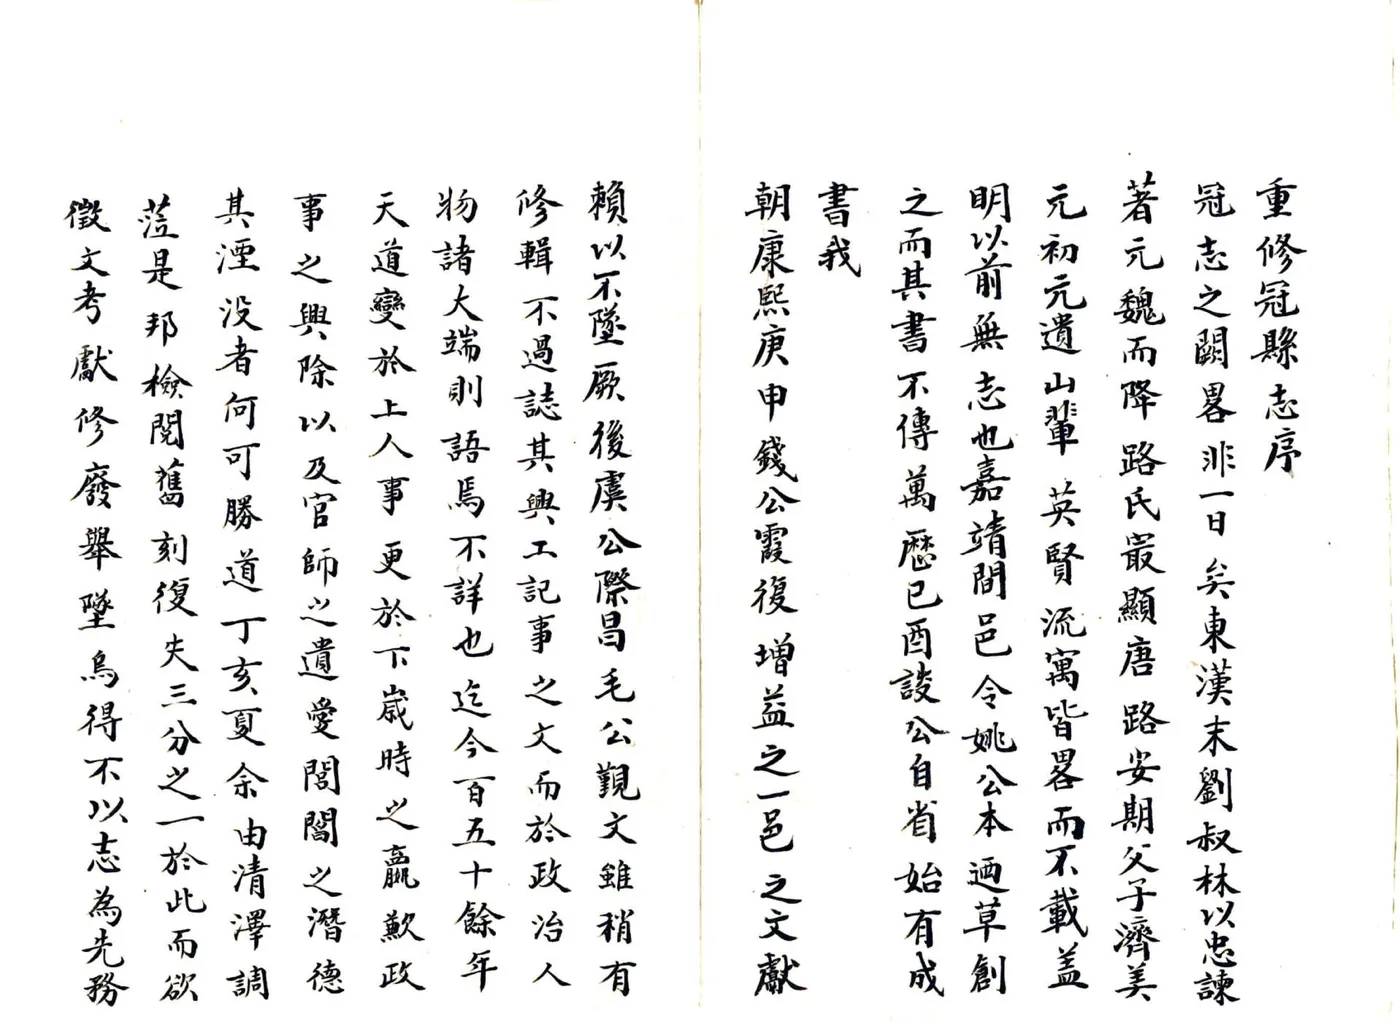 重修冠縣志序
冠志之闕畧非一日矣東漢末劉叔林以忠諫
著元魏而降路氏㝡顯唐路安期父子濟美
元初元遺山輩英賢流寓皆畧而不載盖
明以前無志也嘉靖間邑令姚公本迺草創
之而其書不傳萬歷已酉談公自省始有成
書我
朝康熙庚申錢公霞復增益之一邑之文獻
賴以不墜厥後虞公際昌毛公覲文雖稍有
修輯不過誌其興工記事之文而於政治人
物諸大端則語焉不詳也迄今百五十餘年
天道變於上人事更於下歲時之贏歉政
事之興除以及官師之遺愛閭閻之潛德
其湮没者何可勝道丁亥夏余由清澤調
蒞是邦檢閱舊刻復失三分之一於此而欲
徵文考獻修廢舉墜烏得不以志為先務